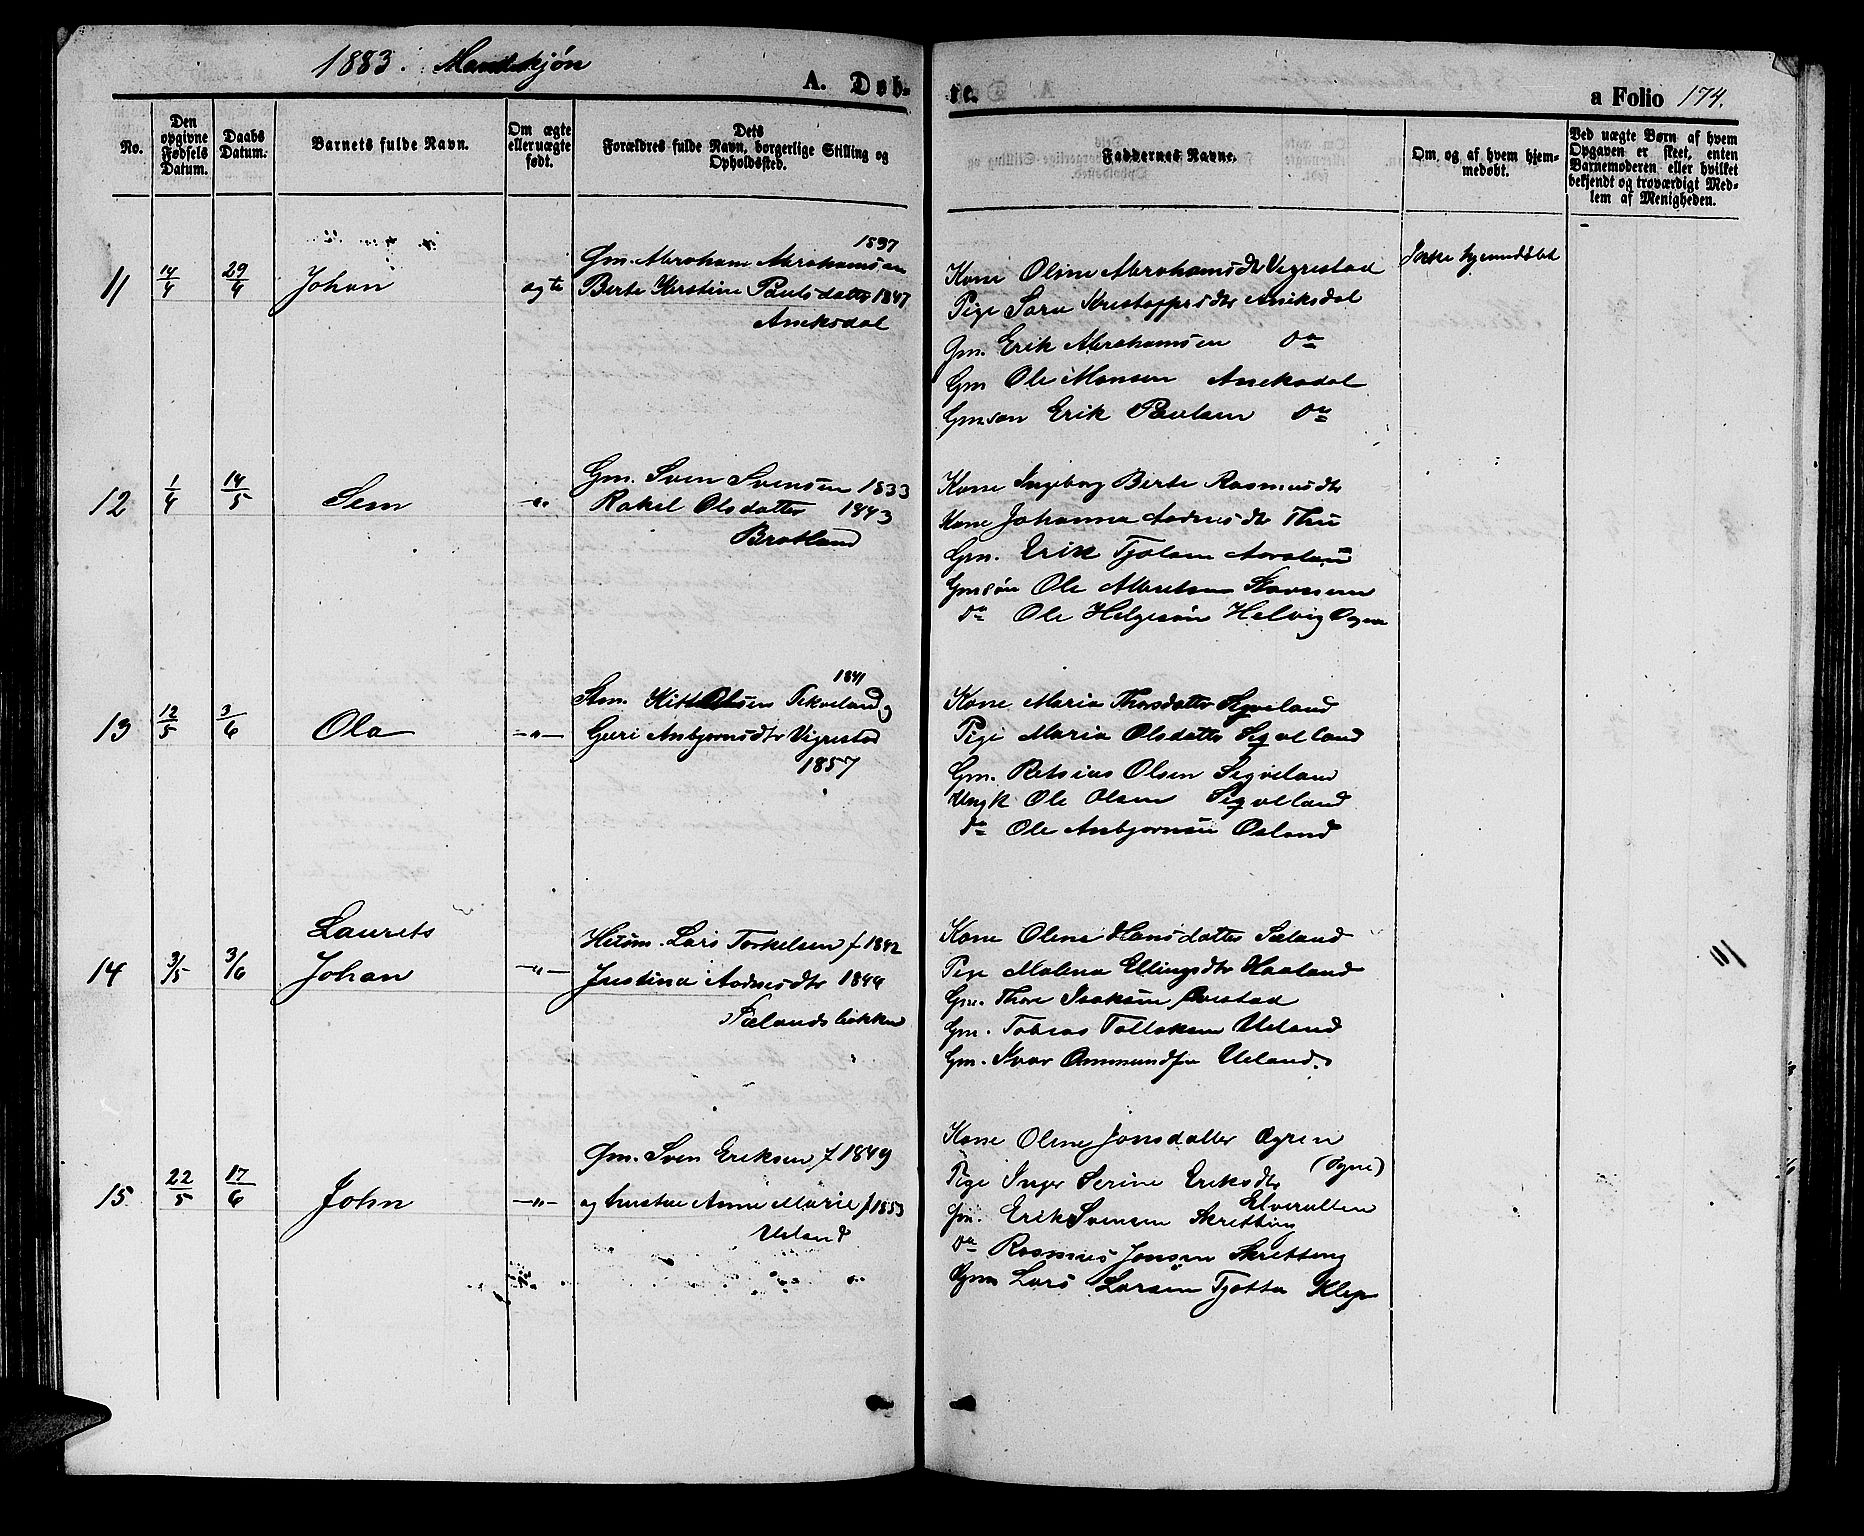 1883. Mandkjøn
A. Døb-
te.
a Folio 174.
No.
Den opgivne Fødsels Datum.
Daabs Datum.
Barnets fulde Navn.
Om ægte eller uægte født.
Dets Forældres fulde Navn, borgerlige Stilling og Opholdssted.
Faddernes Navne.
Om, og af hvem hjemmedøbt.
Ved uægte Børn af hvem Opgaven er skeet, enten Barnemoderen eller hvilket bekjendt og troværdigt Medlem af Menigheden.
11 14/4 29/4 Johan ægte
1837
Gm. Abraham Abrahamsen
Berte Kirstine Paulsdatter 1847
Aniksdal
Kone Oline Abrahamsdtr Vigrestad
Pige Sara Kristoffersdtr Aniksdal
Gm. Erik Abrahamsen do
Gm Ole Monsen Aniksdal
Gmsøn Erik Paulsen do
Ikke hjemmedøbt
12 1/4 14/5 Sem -"-
Gm. Sven Svensen 1833
Rakel Olsdatter 1843
Brotland
Kone Ingeborg Berte Rasmusdtr
Kone Johanna Aadnesdtr Thu
Gm. Erik Tjølsen
Gmsøn Ole
do Ole Helgesøn Helvig Ogne
13 12/5 3/6 Ola -"-
1841
Stm. Kittelsen Tekseland og
Guri Asbjørnsdtr Vigrestad
1857
Kone Maria Thorsdatter Sigveland
Pige Maria Olsdatter Sigveland
Gm. Olsen Sigveland
Ungk Ole Olsen Sigveland
do Ole Asbjørnsen Osland
14 3/5 3/6 Laurits
Johan -"-
Husm. Lars Torkelsen f 1842
Justina Aadnesdtr 1844
Sælandsbakken
Kone Olene Hansdatter Sæland
Pige Malena Ellingsdtr Haaland
Gm. Thore Isaksen
Gm. Tobias Tollaksen Ueland
Gm. Ivar Ommundsen Ueland
15 22/5 17/6 John -"-
Gm. Sven Eriksen f 1849
og hustru Anne Marie f 1853
Ueland
Kone Oline Jonsdatter Ogren
(Ogne)
Pige Inger Serine Eriksdtr
Gm. Erik Svensen Skretting
do Rasmus Jonsen Skretting
Lars Larsen Tjøtta Klep